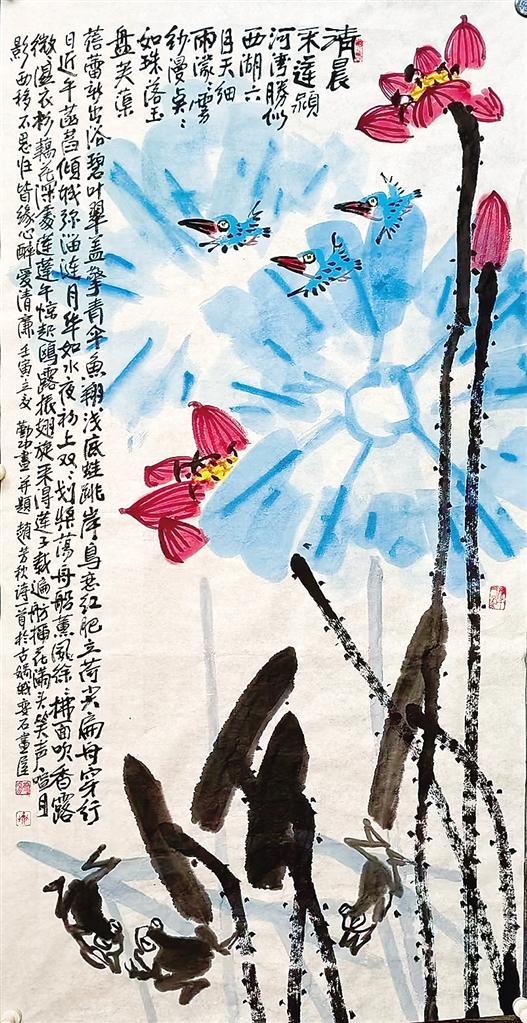 清晨
采莲颍
河湾勝似
西湖六
月天细
雨濛〻雲
纱漫点〻
如珠落玉
盘芙蕖
蓓蕾新出浴碧叶翠盖擎青伞魚翔浅底蛙跳岸鳥恋红肥立荷尖扁舟穿行
日近午菡萏倾城弥涟月华如水夜初上双〻划桨荡舟船薰風徐〻拂面吹香露
微湿衣衫藕花深處莲午惊起鸥鹭振翅旋采得莲子载遍舫插花满头笑声喧月
影西移不思归皆缘心醉爱清廉 壬寅立夏 画并题趙芳秋诗一首於古城石畫屋